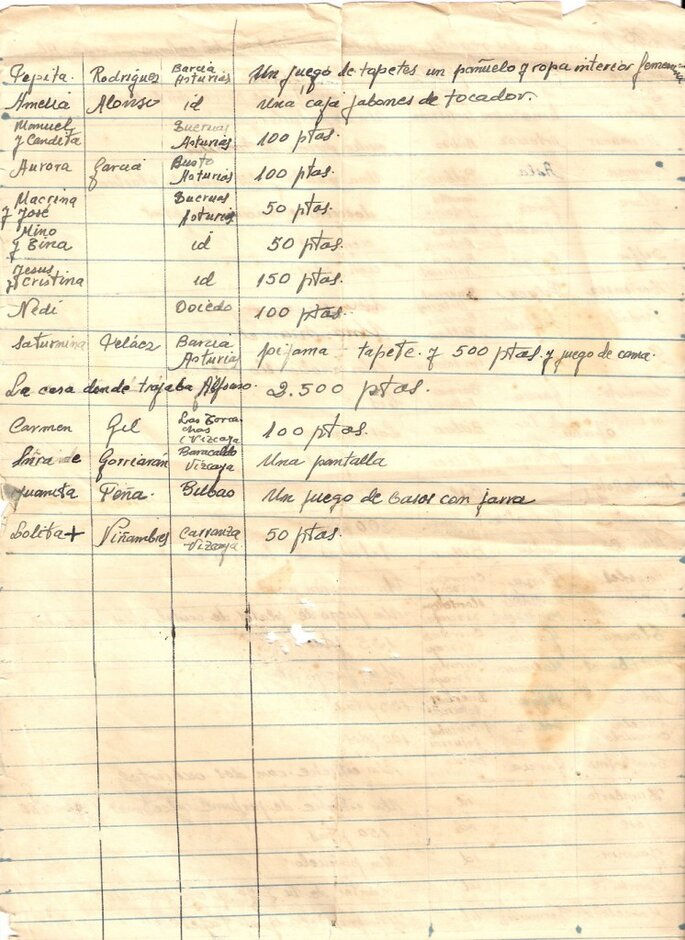 Pepita. Rodriguez Barcia Asturias Un juego de tapetes un pañuelo y ropa interior femenina
Amelia Alonso id Una caja jabones de tocador.
Manuel y Candita Asturias 100 ptas.
Aurora Garcia Busto Asturias 100 ptas.
Macrina y José Asturias 50 ptas.
Mino y id 50 ptas.
Jesus y Cristina id 150 ptas.
Nedi Oviedo 100 ptas.
Saturnina Pelaez Barcia Asturias pijama - tapete. y 500 ptas. y juego de cama.
La casa donde trajaba Alfonso. 2.500 ptas.
Carmen Gil Vizcaya 100 ptas.
Sñra de Gorriarán Baracaldo Vizcaya Una pantalla
Juanita Peña. Bilbao Un juego de basos con jarra
Lolita + Viñambres Carranza Vizcaya. 50 ptas.